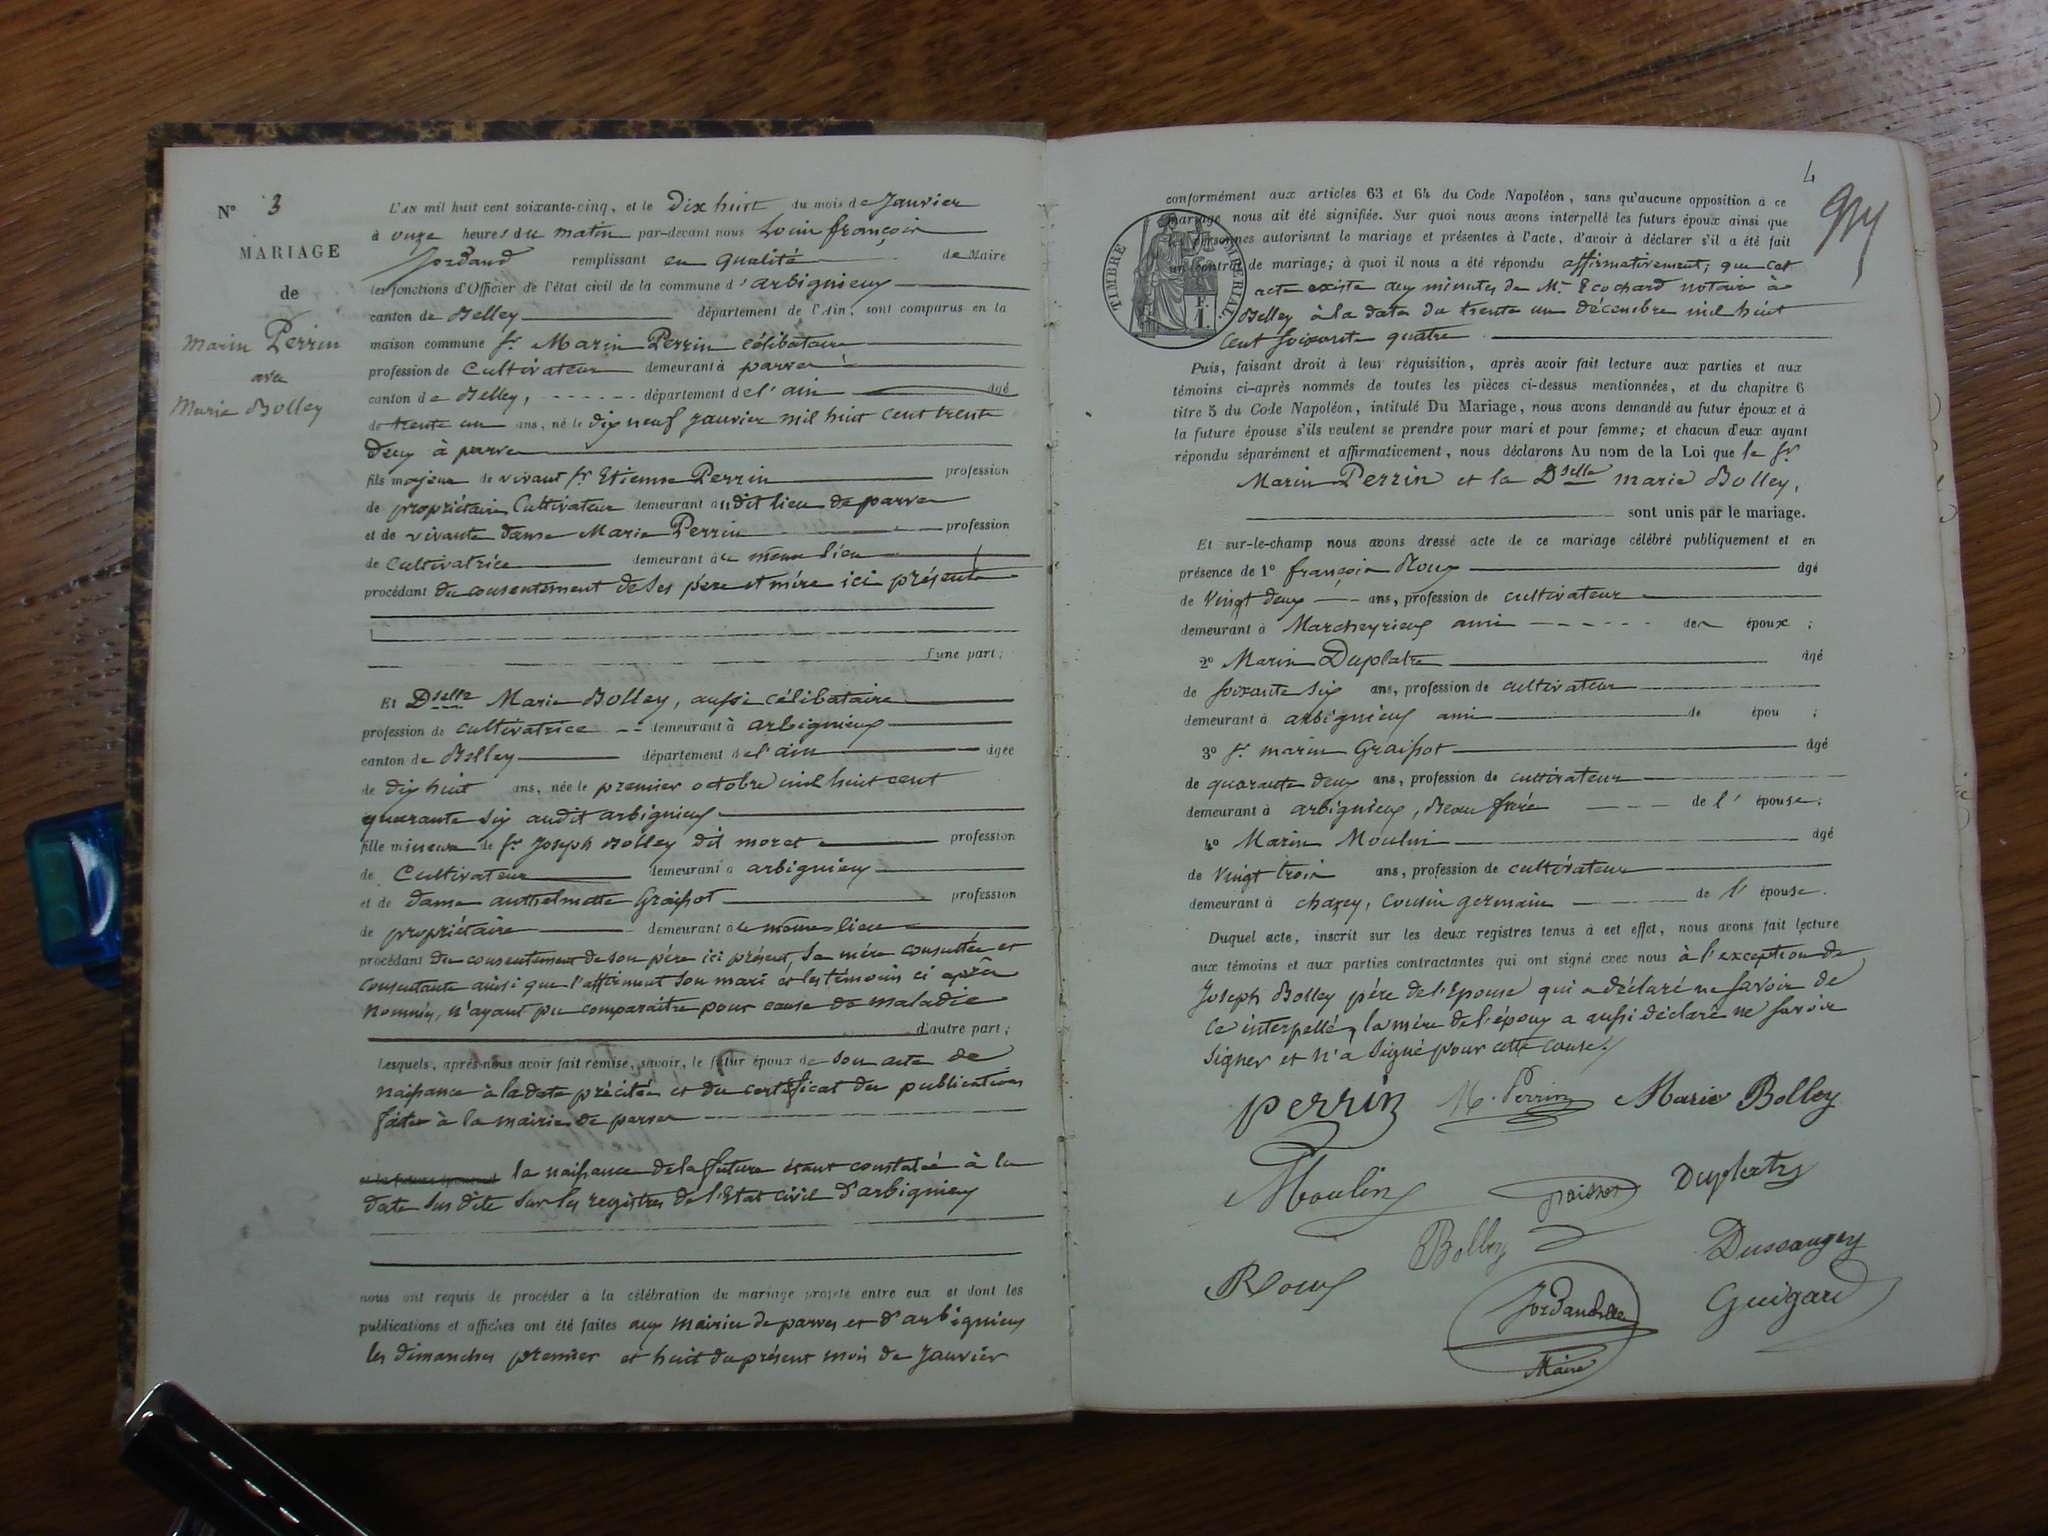 N° 3
MARIAGE
de
Marin Perrin
avec
Marie Bolley
L'AN mil huit cent soixante-cinq, et le Dix huit du mois de Janvier
à onze heures du matin par-devant nous Louis françois
Jordand remplissant en qualité de Maire
les fonctions d'Officier de l'état civil de la commune d'arbignieux
canton de Belley département de l'Ain, sont comparus en la
maison commune Sr Marin Perrin célibataire
profession de Cultivateur demeurant à parves
canton de Belley, département de l'ain âgé
de trente un ans, né le dix neuf janvier mil huit cent trente
deux à parves
fils majeur de vivant Sr Etienne Perrin profession
de propriétaire Cultivateur demeurant audit lieu de parves
et de vivante dame Marie Perrin profession
de Cultivatrice demeurant à le même lieu
procédant du consentement de ses père et mère ici présents
d'une part;
Et Dselle Marie Bolley, aussi célibataire
profession de cultivatrice demeurant à arbignieux
canton de Belley département de l'ain âgée
de dix huit ans, née le premier octobre mil huit cent
quarante six audit arbignieux
fille mineure de Sr Joseph Bolley dit moret profession
de Cultivateur demeurant à arbignieux
et de dame anthelmette Graissot profession
de propriétaire demeurant à le même lieu
procédant du consentement de son père ici présent, sa mère consultée et
consentante ainsi que l'affirment son mari et les témoins ci après
nommés, n'ayant pu comparaitre pour cause de maladie
d'autre part;
Lesquels, après nous avoir fait remise, savoir, le futur époux de son acte de
naissance à la date précitée et du certificat des publications
faites à la mairie de parves
et la future épouse la naissance de la future étant constatée à la
date sus dite sur les registres de l'Etat civil d'arbignieux
nous ont requis de procéder à la célébration du mariage projeté entre eux et dont les
publications et affiches ont été faites aux mairies de parves et d'arbignieux
les dimanches premier et huit du présent mois de Janvier
4
conformément aux articles 63 et 64 du Code Napoléon, sans qu'aucune opposition à ce
mariage nous ait été signifiée. Sur quoi nous avons interpellé les futurs époux ainsi que
les personnes autorisant le mariage et présentes à l'acte, d'avoir à déclarer s'il a été fait
un contrat de mariage; à quoi il nous a été répondu affirmativement; que cet
acte existe aux minutes de Me Ecochard notaire à
Belley à la date du trente un décembre mil huit
cent soixante quatre
TIMBRE IMPÉRIAL
Puis, faisant droit à leur réquisition, après avoir fait lecture aux parties et aux
témoins ci-après nommés de toutes les pièces ci-dessus mentionnées, et du chapitre 6
titre 5 du Code Napoléon, intitulé Du Mariage, nous avons demandé au futur époux et à
la future épouse s'ils veulent se prendre pour mari et pour femme; et chacun d'eux ayant
répondu séparément et affirmativement, nous déclarons Au nom de la Loi que le Sr
Marin Perrin et la Dselle marie Bolley,
sont unis par le mariage.
Et sur-le-champ nous avons dressé acte de ce mariage célébré publiquement et en
présence de 1° françois Roux âgé
de Vingt deux ans, profession de cultivateur
demeurant à Marcheyrieux ami des époux;
2° Marin Duplatre âgé
de soixante six ans, profession de cultivateur
demeurant à arbignieux ami de épou ;
3° Sr marin Graissot âgé
de quarante deux ans, profession de cultivateur
demeurant à arbignieux, Beau frère de l'épouse;
4° Marin Moulin âgé
de Vingt trois ans, profession de cultivateur
demeurant à chazey, cousin germain de l'épouse.
Duquel acte, inscrit sur les deux registres tenus à cet effet, nous avons fait lecture
aux témoins et aux parties contractantes qui ont signé avec nous à l'exception de
Joseph Bolley père de l'Epouse qui a déclaré ne savoir de
ce interpellé, la mère de l'époux a aussi déclaré ne savoir
signer et n'a signé pour cette cause.
perrin M. Perrin Marie Bolley
Moulin graissot Duplatre
Bolley Dussaugey
Roux Guigard
Jordand
Maire